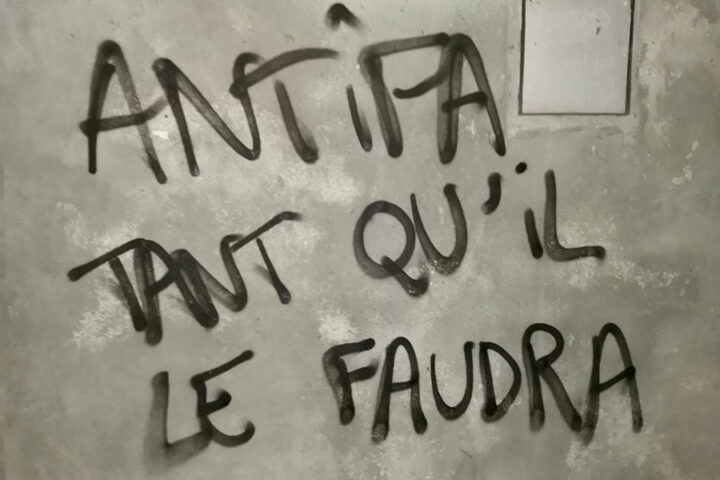 ANTiFA
TANT QU'iL
LE FAUDRA